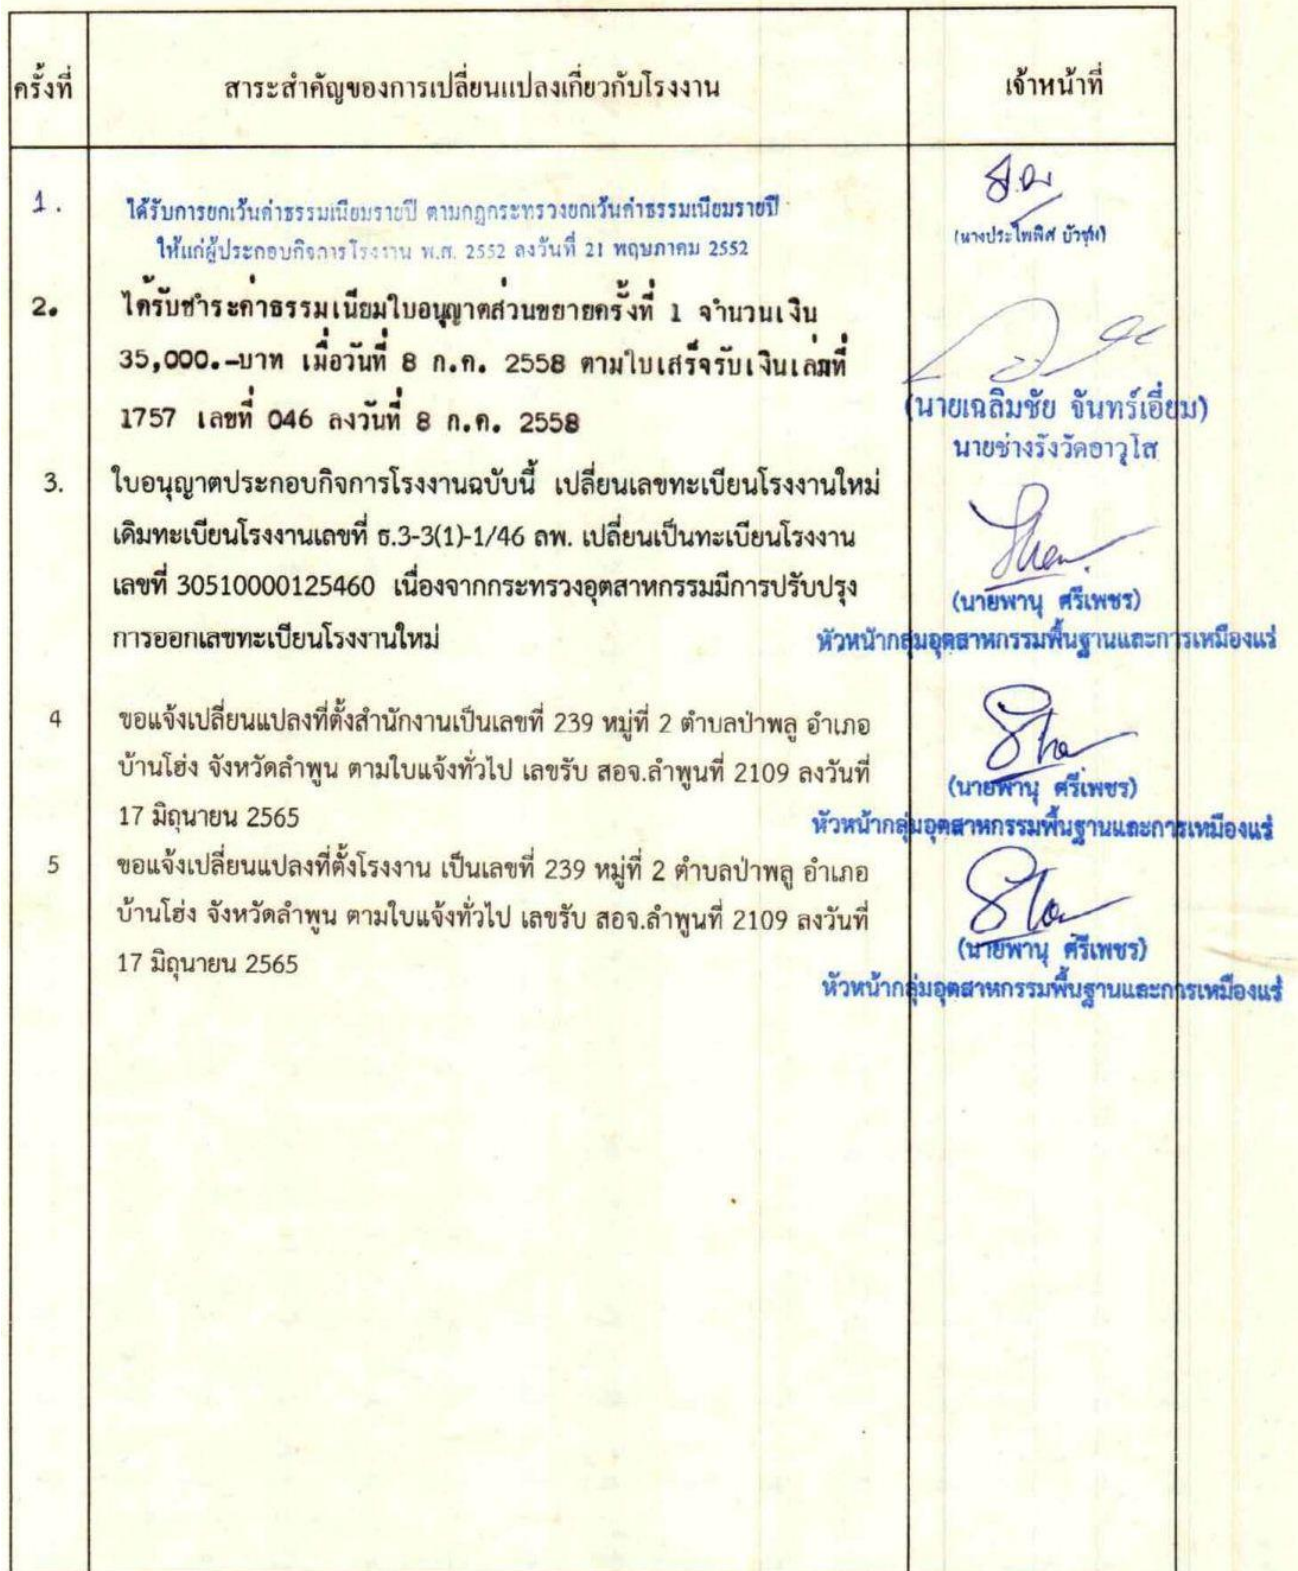 ครั้งที่ สาระสำคัญของการเปลี่ยนแปลงเกี่ยวกับโรงงาน เจ้าหน้าที่
1. ได้รับการยกเว้นค่าธรรมเนียมรายปี ตามกฎกระทรวงยกเว้นค่าธรรมเนียมรายปี
ให้แก่ผู้ประกอบกิจการโรงงาน พ.ศ. 2552 ลงวันที่ 21 พฤษภาคม 2552
(นางประไพพิศ บัวชุม)
2. ได้รับชำระค่าธรรมเนียมใบอนุญาตส่วนขยายครั้งที่ 1 จำนวนเงิน
35,000.-บาท เมื่อวันที่ 8 ก.ค. 2558 ตามใบเสร็จรับเงินเล่มที่
1757 เลขที่ 046 ลงวันที่ 8 ก.ค. 2558
(นายเฉลิมชัย จันทร์เอี่ยม)
นายช่างรังวัดอาวุโส
3. ใบอนุญาตประกอบกิจการโรงงานฉบับนี้ เปลี่ยนเลขทะเบียนโรงงานใหม่
เดิมทะเบียนโรงงานเลขที่ ธ.3-3(1)-1/46 ลพ. เปลี่ยนเป็นทะเบียนโรงงาน
เลขที่ 30510000125460 เนื่องจากกระทรวงอุตสาหกรรมมีการปรับปรุง
การออกเลขทะเบียนโรงงานใหม่
(นายพานุ ศรีเพชร)
หัวหน้ากลุ่มอุตสาหกรรมพื้นฐานและการเหมืองแร่
4 ขอแจ้งเปลี่ยนแปลงที่ตั้งสำนักงานเป็นเลขที่ 239 หมู่ที่ 2 ตำบลป่าพลู อำเภอ
บ้านโฮ่ง จังหวัดลำพูน ตามใบแจ้งทั่วไป เลขรับ สอจ.ลำพูนที่ 2109 ลงวันที่
17 มิถุนายน 2565
(นายพานุ ศรีเพชร)
หัวหน้ากลุ่มอุตสาหกรรมพื้นฐานและการเหมืองแร่
5 ขอแจ้งเปลี่ยนแปลงที่ตั้งโรงงาน เป็นเลขที่ 239 หมู่ที่ 2 ตำบลป่าพลู อำเภอ
บ้านโฮ่ง จังหวัดลำพูน ตามใบแจ้งทั่วไป เลขรับ สอจ.ลำพูนที่ 2109 ลงวันที่
17 มิถุนายน 2565
(นายพานุ ศรีเพชร)
หัวหน้ากลุ่มอุตสาหกรรมพื้นฐานและการเหมืองแร่